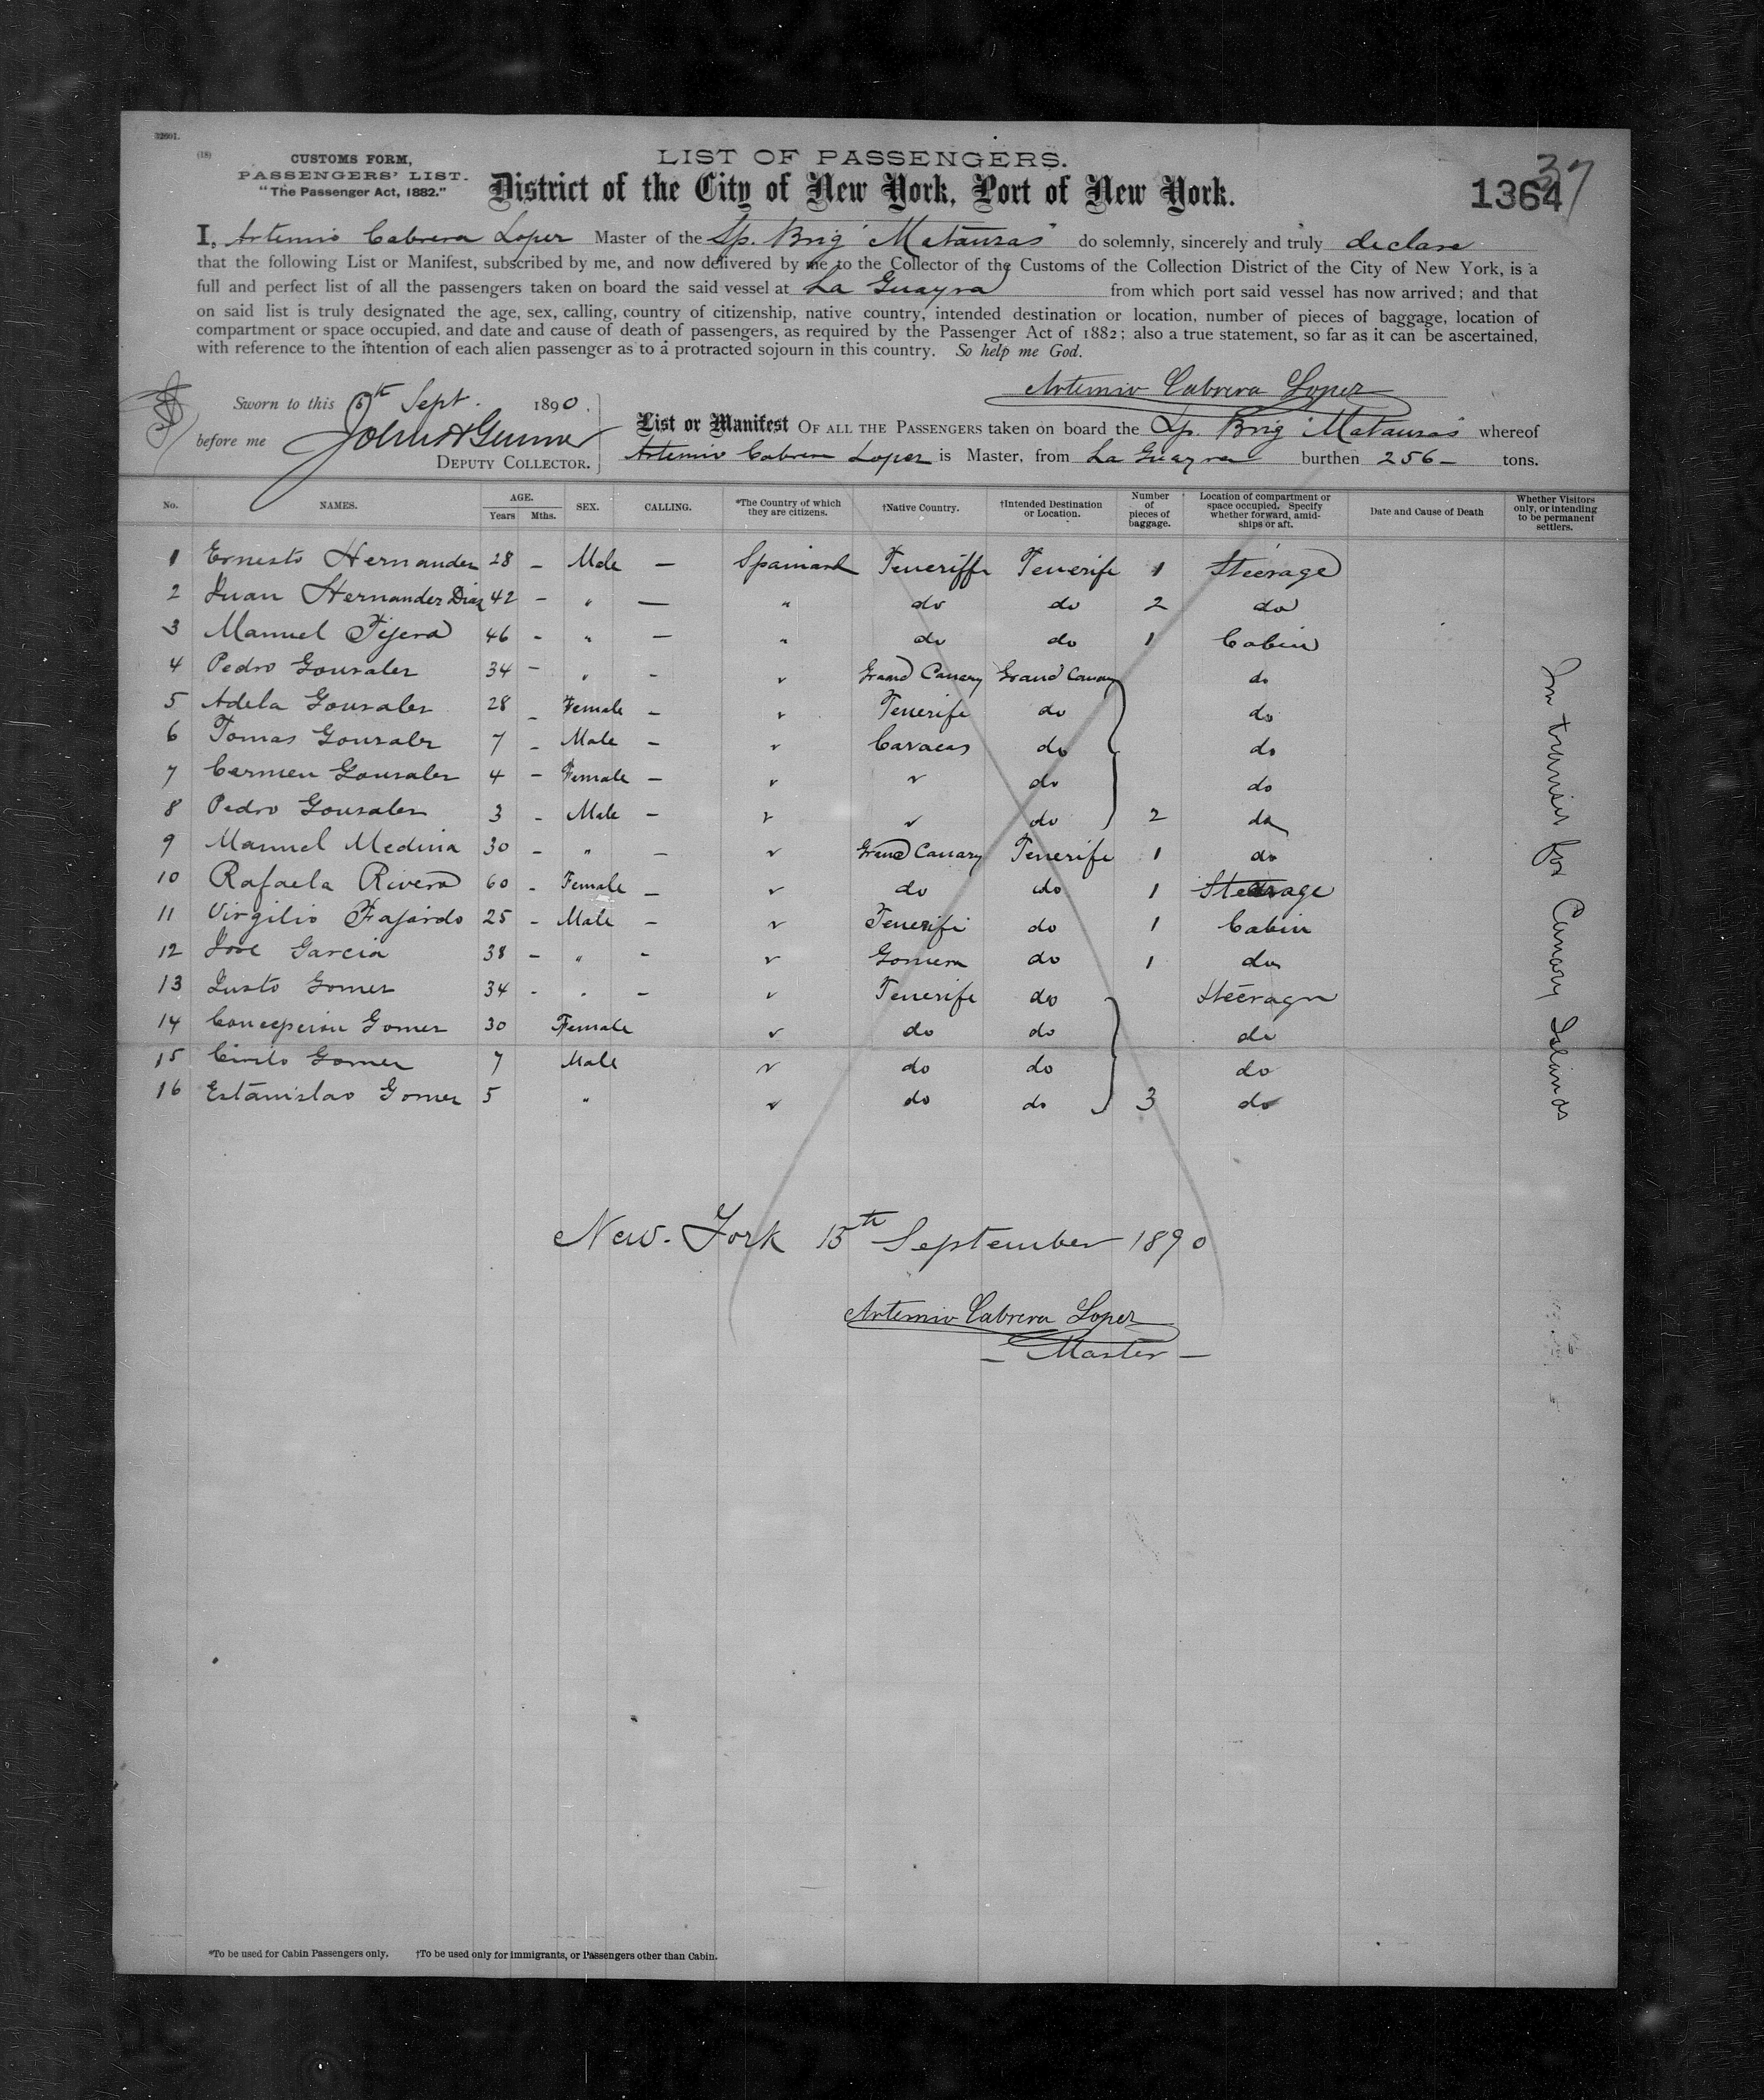 32601.
(18)
CUSTOMS FORM,
PASSENGERS' LIST.
"The Passenger Act, 1882."
LIST OF PASSENGERS.
District of the City of New York, Port of New York.
37
1364
I, Artemio Cabrera Lopez Master of the Sp. Brig "Matanzas" do solemnly, sincerely and truly declare
that the following List or Manifest, subscribed by me, and now delivered by me to the Collector of the Customs of the Collection District of the City of New York, is a
full and perfect list of all the passengers taken on board the said vessel at La Guayra from which port said vessel has now arrived; and that
on said list is truly designated the age, sex, calling, country of citizenship, native country, intended destination or location, number of pieces of baggage, location of
compartment or space occupied, and date and cause of death of passengers, as required by the Passenger Act of 1882; also a true statement, so far as it can be ascertained,
with reference to the intention of each alien passenger as to a protracted sojourn in this country. So help me God.
Artemio Cabrera Lopez
Sworn to this Sept. 1890.
before me
DEPUTY COLLECTOR.
List or Manifest OF ALL THE PASSENGERS taken on board the Sp. Brig "Matanzas" whereof
Artemio Cabrera Lopez is Master, from La Guayra burthen 256 - tons.
No. NAMES. AGE. Years Mths. SEX. CALLING. *The Country of which they are citizens. †Native Country. †Intended Destination or Location. Number of pieces of baggage. Location of compartment or space occupied. Specify whether forward, amidships or aft. Date and Cause of Death Whether Visitors only, or intending to be permanent settlers.
1 Ernesto Hernandez 28 - Male - Spaniard Teneriffe Tenerife 1 Steerage
2 Juan Hernandez Diaz 42 - " - " do do 2 do
3 Manuel Tejera 46 - " - " do do 1 Cabin
4 Pedro Gonzalez 34 - " - " Grand Canary Grand Canary do
5 Adela Gonzalez 28 - Female - " Tenerife do do
6 Tomas Gonzalez 7 - Male - " Caracas do do
7 Carmen Gonzalez 4 - Female - " " do do
8 Pedro Gonzalez 3 - Male - " " do 2 do
9 Manuel Medina 30 - " - " Grand Canary Tenerife 1 do
10 Rafaela Rivero 60 - Female - " do do 1 Steerage
11 Virgilio Fajardo 25 - Male - " Tenerife do 1 Cabin
12 Jose Garcia 38 - " - " Gomera do 1 do
13 Justo Gomez 34 - " - " Tenerife do Steerage
14 Concepcion Gomez 30 Female " do do do
15 Gomez 7 Male " do do do
16 Estanislao Gomez 5 " " do do 3 do
In transit for Canary Islands
New-York 15th September 1890
Artemio Cabrera Lopez
- Master -
*To be used for Cabin Passengers only. †To be used only for immigrants, or Passengers other than Cabin.